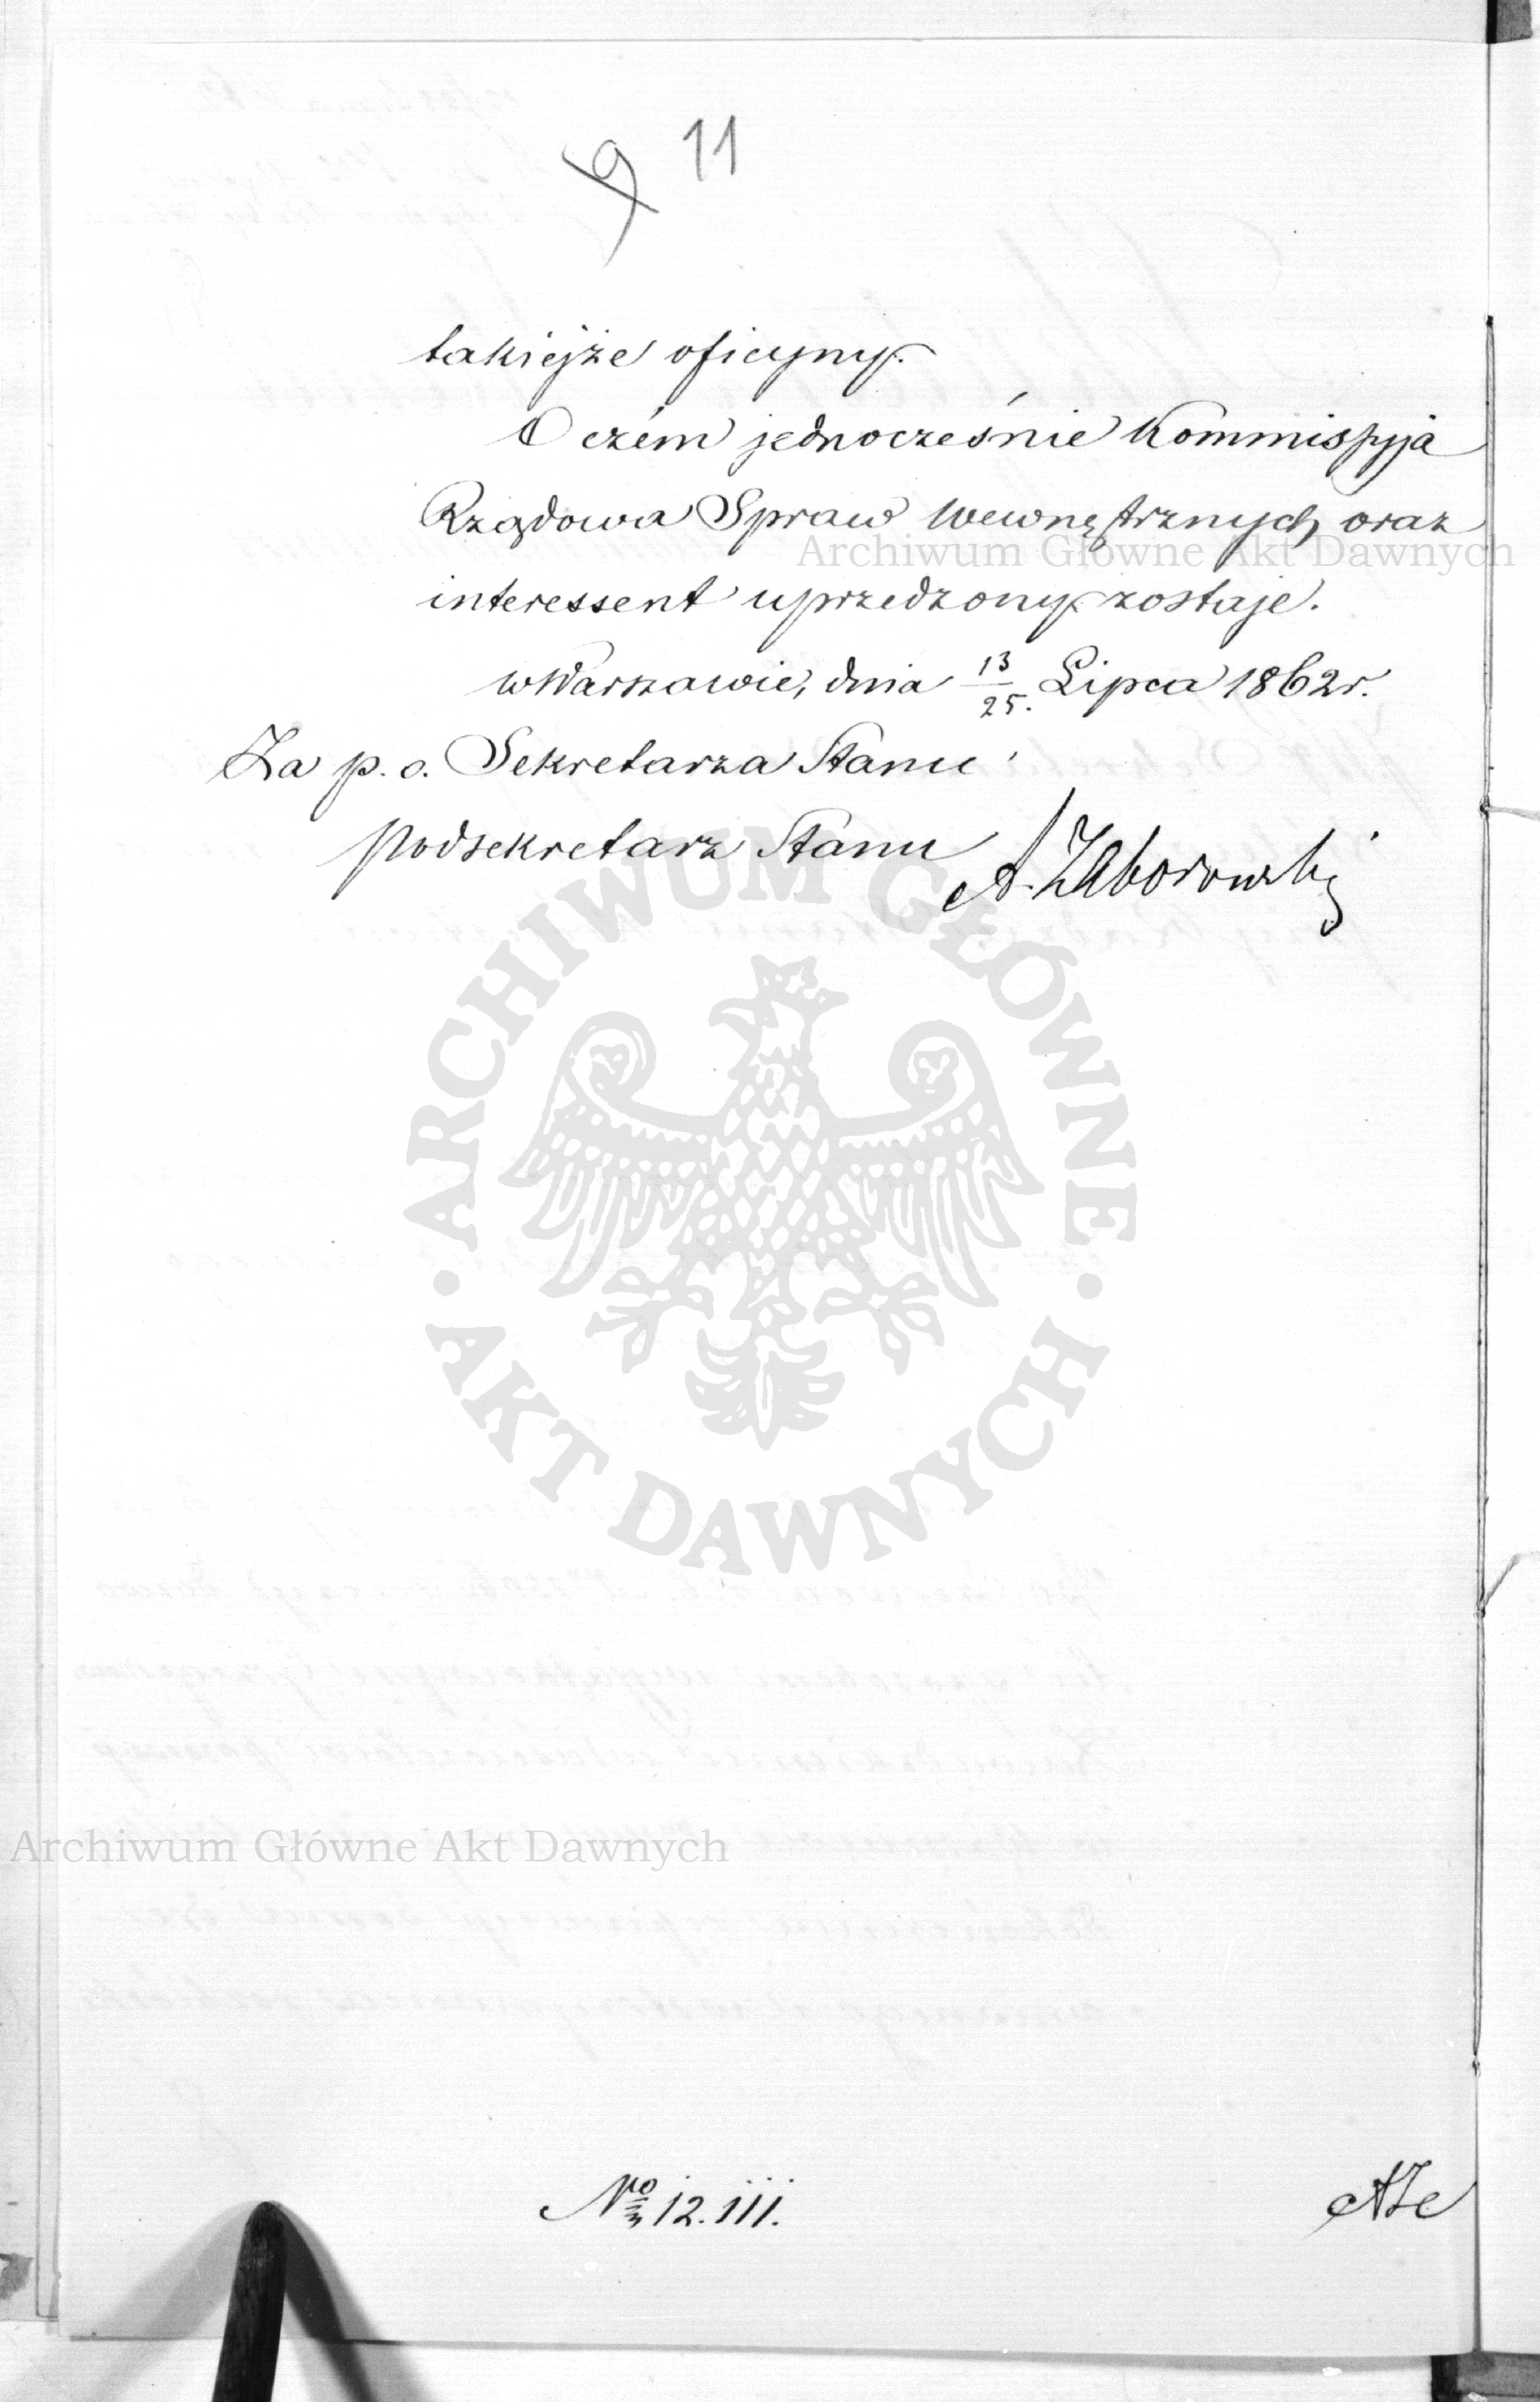 9 11
takiéjże oficyny.
O czém jednocześnie Kommissyja
Rządowa Spraw Wewnętrznych oraz
Archiwum Główne Akt Dawnych
interessent uprzedzony zostaje.
w Warszawie, dnia 13/25. Lipca 1862 r.
Za p. o. Sekretarza Stanu
Podsekretarz Stanu A. Zaborowski
ARCHIWUM GŁÓWNE
· AKT DAWNYCH ·
Archiwum Główne Akt Dawnych
No 12.111.